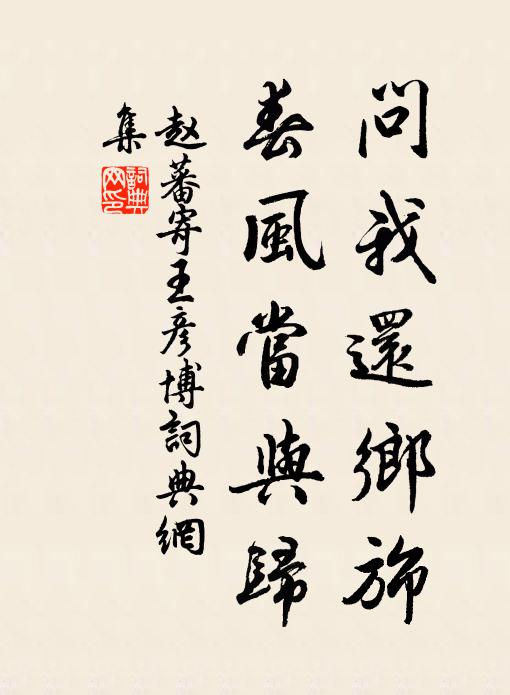 問我還鄉旆
春風當與歸
赵蕃寄王彦博詞典網
集
詞典網印